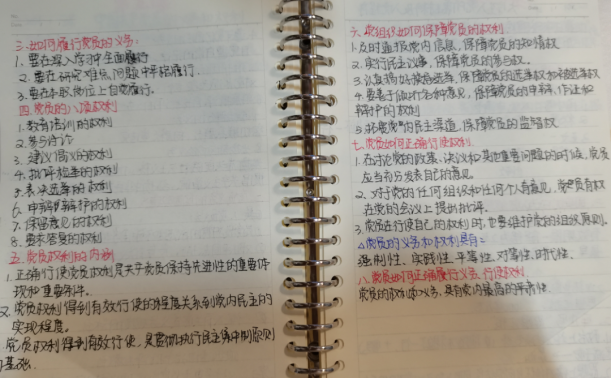 三.如何履行党员的义务:
1.要在深入学习中全面履行
2.要在研究难点问题中牢记履行.
3.要在本职岗位上自觉履行。
四.党员的八项权利
1.教育培训的权利
2.参与讨论
3.建议倡议的权利
4.批评检举的权利
5.表决选举的权利
6.申辩辩护的权利
7.保留意见的权利
8.要求答复的权利
五.党员权利的内涵
1.正确行使党员权利是关于党员保持先进性的重要体
现和重要条件。
2.党员权利得到有效行使的程度关系到党内民主的
实现程度。
党员权利得到有效行使,是贯彻执行民主集中制原则
基础.
六.党组织如何保障党员的权利
1.及时通报党内信息,保障党员的知情权
2.实行民主议事,保障党员的参与权。
3.认真搞好候选选举,保障党员的选举权和被选举权
4.要善于倾听各种意见,保障党员的申辩、作证和
辩护的权利
5.拓宽党内民主渠道,保障党员的监督权
七.党员如何正确行使权利
1.在讨论党的政策、决议和其他重要问题的时候,党员
应当充分发表自己的意见。
2.对于党的任何组织和任何个人有意见,党员有权
在党的会议上提出批评.
3.党员在行使自己的权利时,也要维护党的组织原则.
党员的义务和权利具有:
强制性、实践性、平等性、对等性、时代性.
八.党员如何正确履行义务、行使权利
党员的权利和义务,是有党内最高的平等性